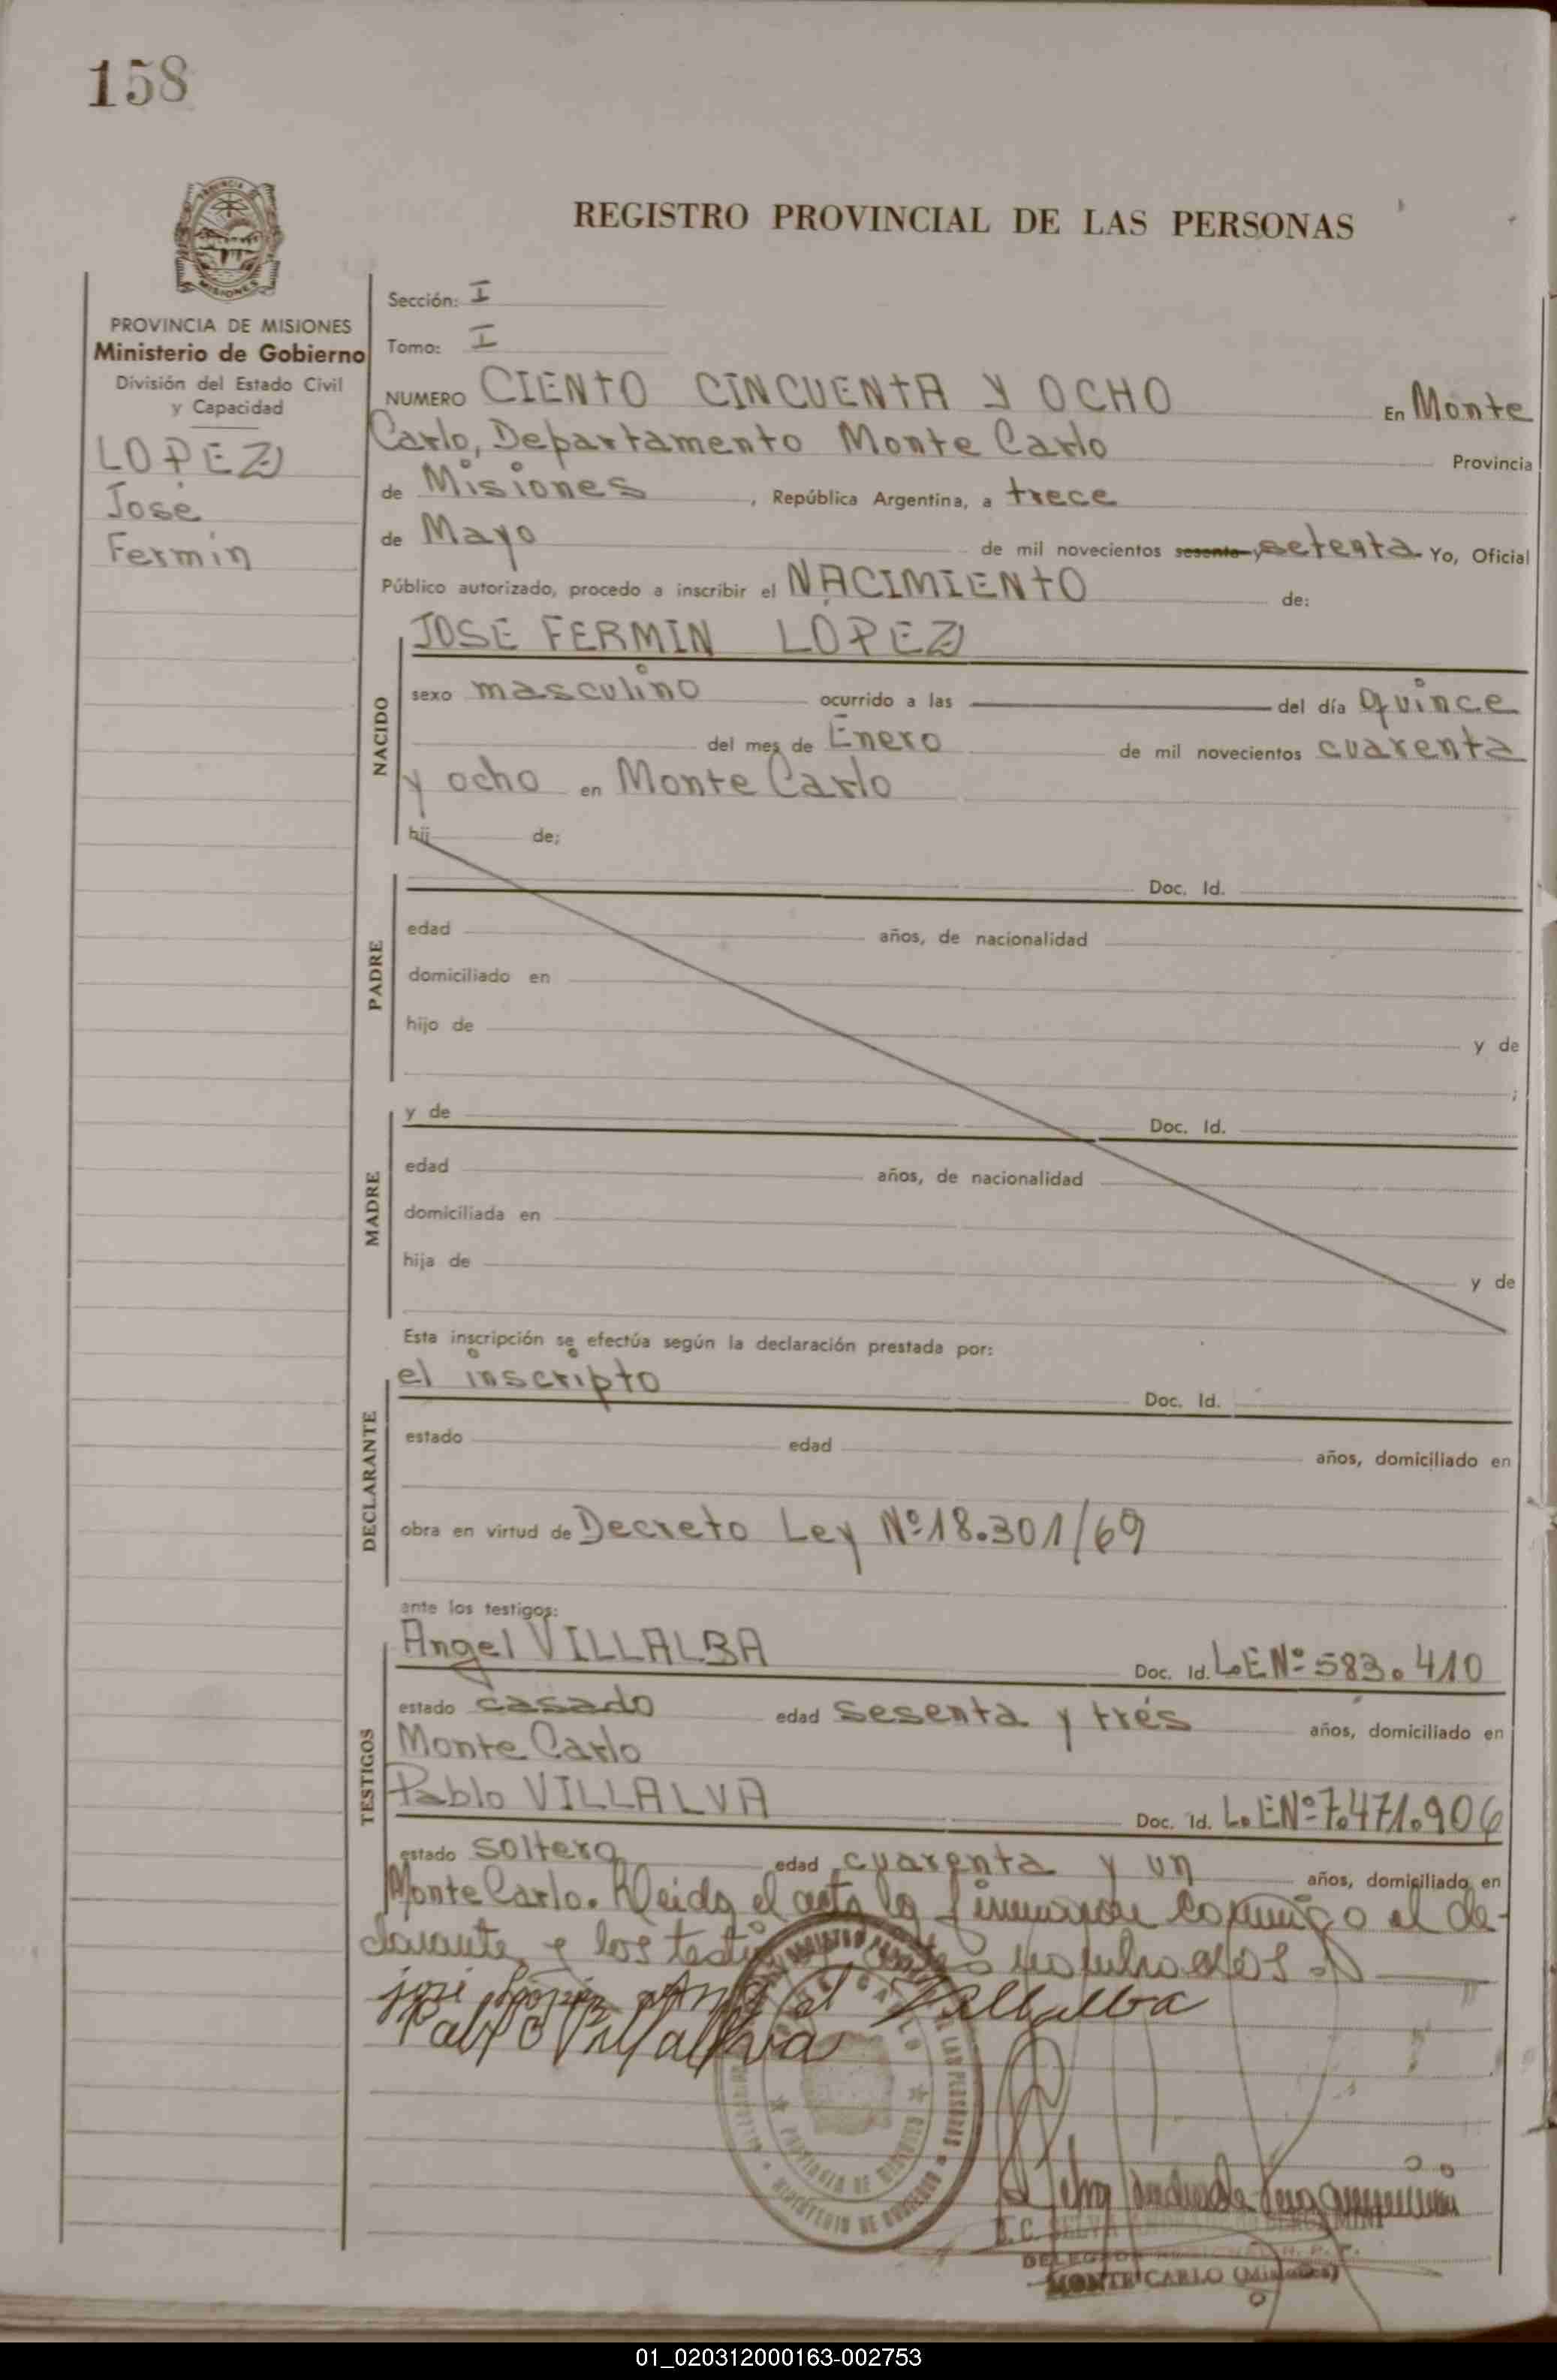 158
REGISTRO PROVINCIAL DE LAS PERSONAS
PROVINCIA DE MISIONES
Ministerio de Gobierno
División del Estado Civil
y Capacidad
LOPEZ
José
Fermin
Sección: I
Tomo: I
NUMERO CIENTO CINCUENTA Y OCHO En Monte
Carlo, Departamento Monte Carlo Provincia
de Misiones, República Argentina, a trece
de Mayo de mil novecientos sesenta y setenta Yo, Oficial
Público autorizado, procedo a inscribir el NACIMIENTO de:
NACIDO
JOSE FERMIN LOPEZ
sexo masculino ocurrido a las del día quince
del mes de Enero de mil novecientos cuarenta
y ocho en Monte Carlo
hij de;
PADRE
Doc. Id.
edad años, de nacionalidad
domiciliado en
hijo de y de
;
MADRE
y de Doc. Id.
edad años, de nacionalidad
domiciliada en
hija de y de
Esta inscripción se efectúa según la declaración prestada por:
DECLARANTE
el inscripto Doc. Id.
estado edad años, domiciliado en
obra en virtud de Decreto Ley Nº 18.301/69
ante los testigos:
TESTIGOS
Angel VILLALBA Doc. Id. L.E Nº 583.410
estado casado edad sesenta y trés años, domiciliado en
Monte Carlo
Pablo VILLALVA Doc. Id. L.E Nº 7.471.906
estado soltero edad cuarenta y un años, domiciliado en
Monte Carlo. Leida el acta la firmaron conmigo el de-
clarante y los
josé López Angel Villalba
Pablo Villalva
PROVINCIA DE MISIONES
MINISTERIO DE GOBIERNO
MONTE CARLO (Misiones)
01_020312000163-002753